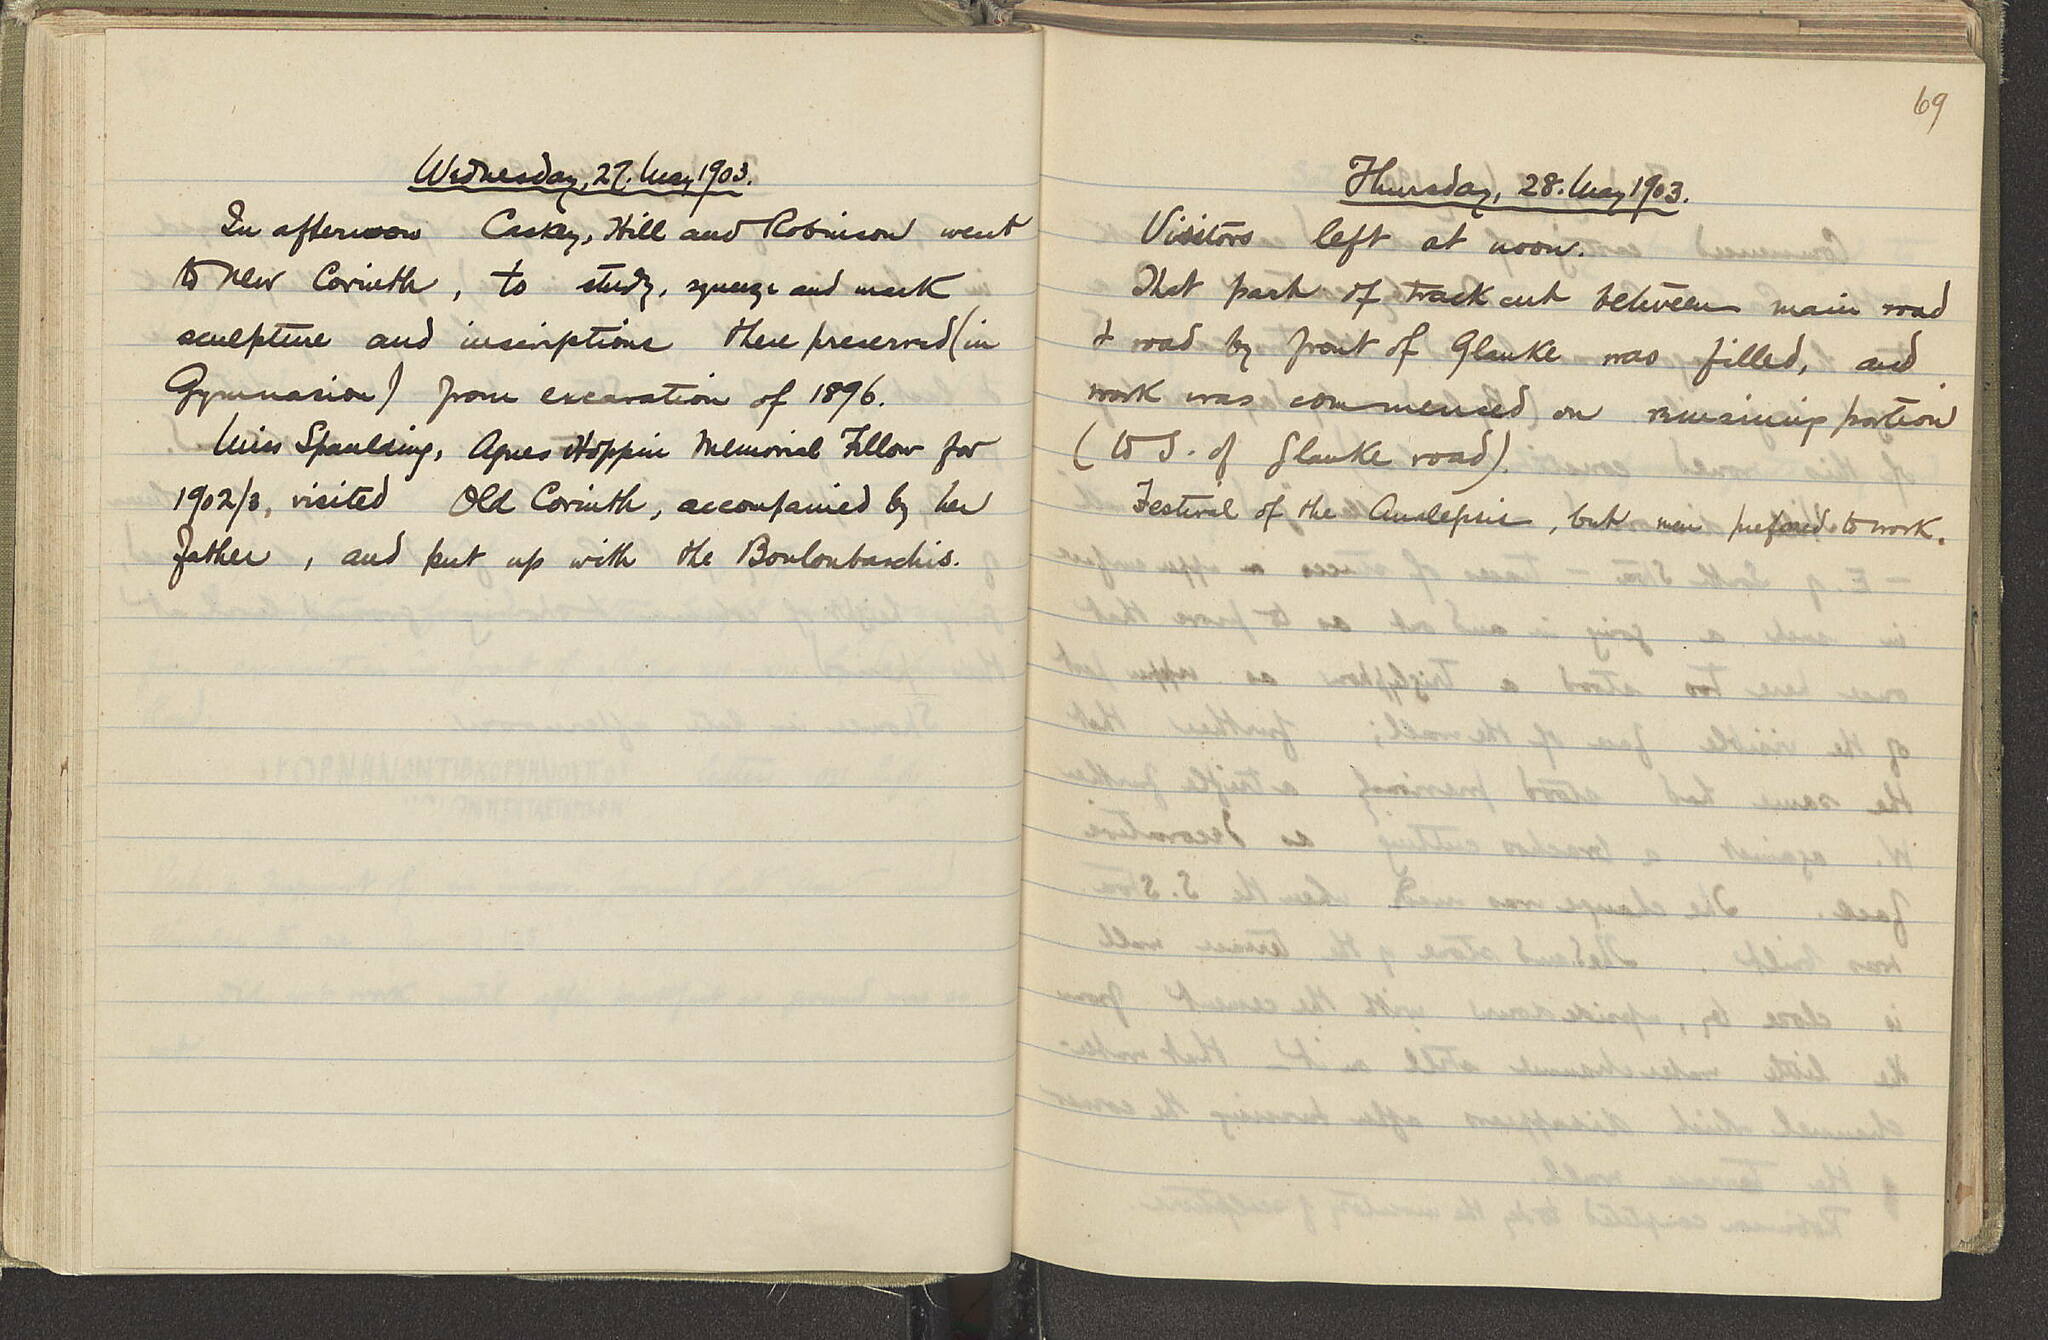 Wednesday, 27. May 1903.
In afternoon Caskey, Hill and Robinson went
to New Corinth, to study, squeeze and mark
sculpture and inscriptions there preserved (in
Gymnasion) from excavation of 1896.
Miss Spaulding, Agnes Hoppin Memorial Fellow for
1902/3, visited Old Corinth, accompanied by her
father, and put up with the Bouloubaschis.
69
Thursday, 28. May 1903.
Visitors left at noon.
That part of track cut between main road
& road by front of Glauke was filled, and
work was commenced on remaining portion
(to S. of Glauke road).
Festival of the Analepsis, but men prefered to work.